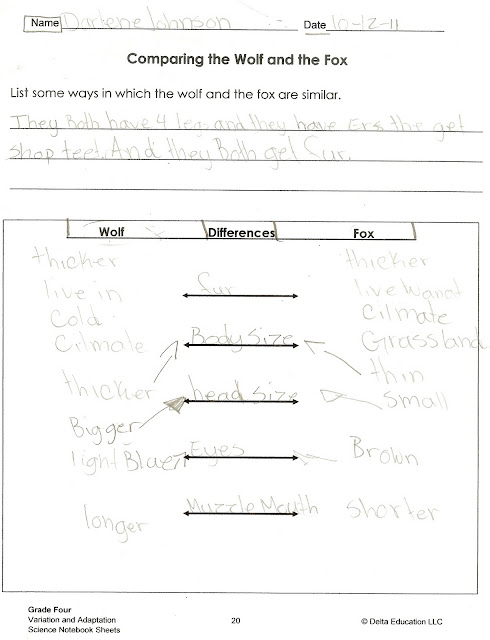 Name Darlene Johnson Date 10-12-11
Comparing the Wolf and the Fox
List some ways in which the wolf and the fox are similar.
They Both have 4 leg. and they have Ers the get
shop teet. And they Both get fur.
Wolf Differences Fox
thicker fur thicker
live in live
Cold Cilmate
Cilmate Body size Grassland
thicker head size thin
Bigger small
light Blue Eyes Brown
longer Muzzle Mouth shorter
Grade Four
Variation and Adaptation
Science Notebook Sheets
20
© Delta Education LLC